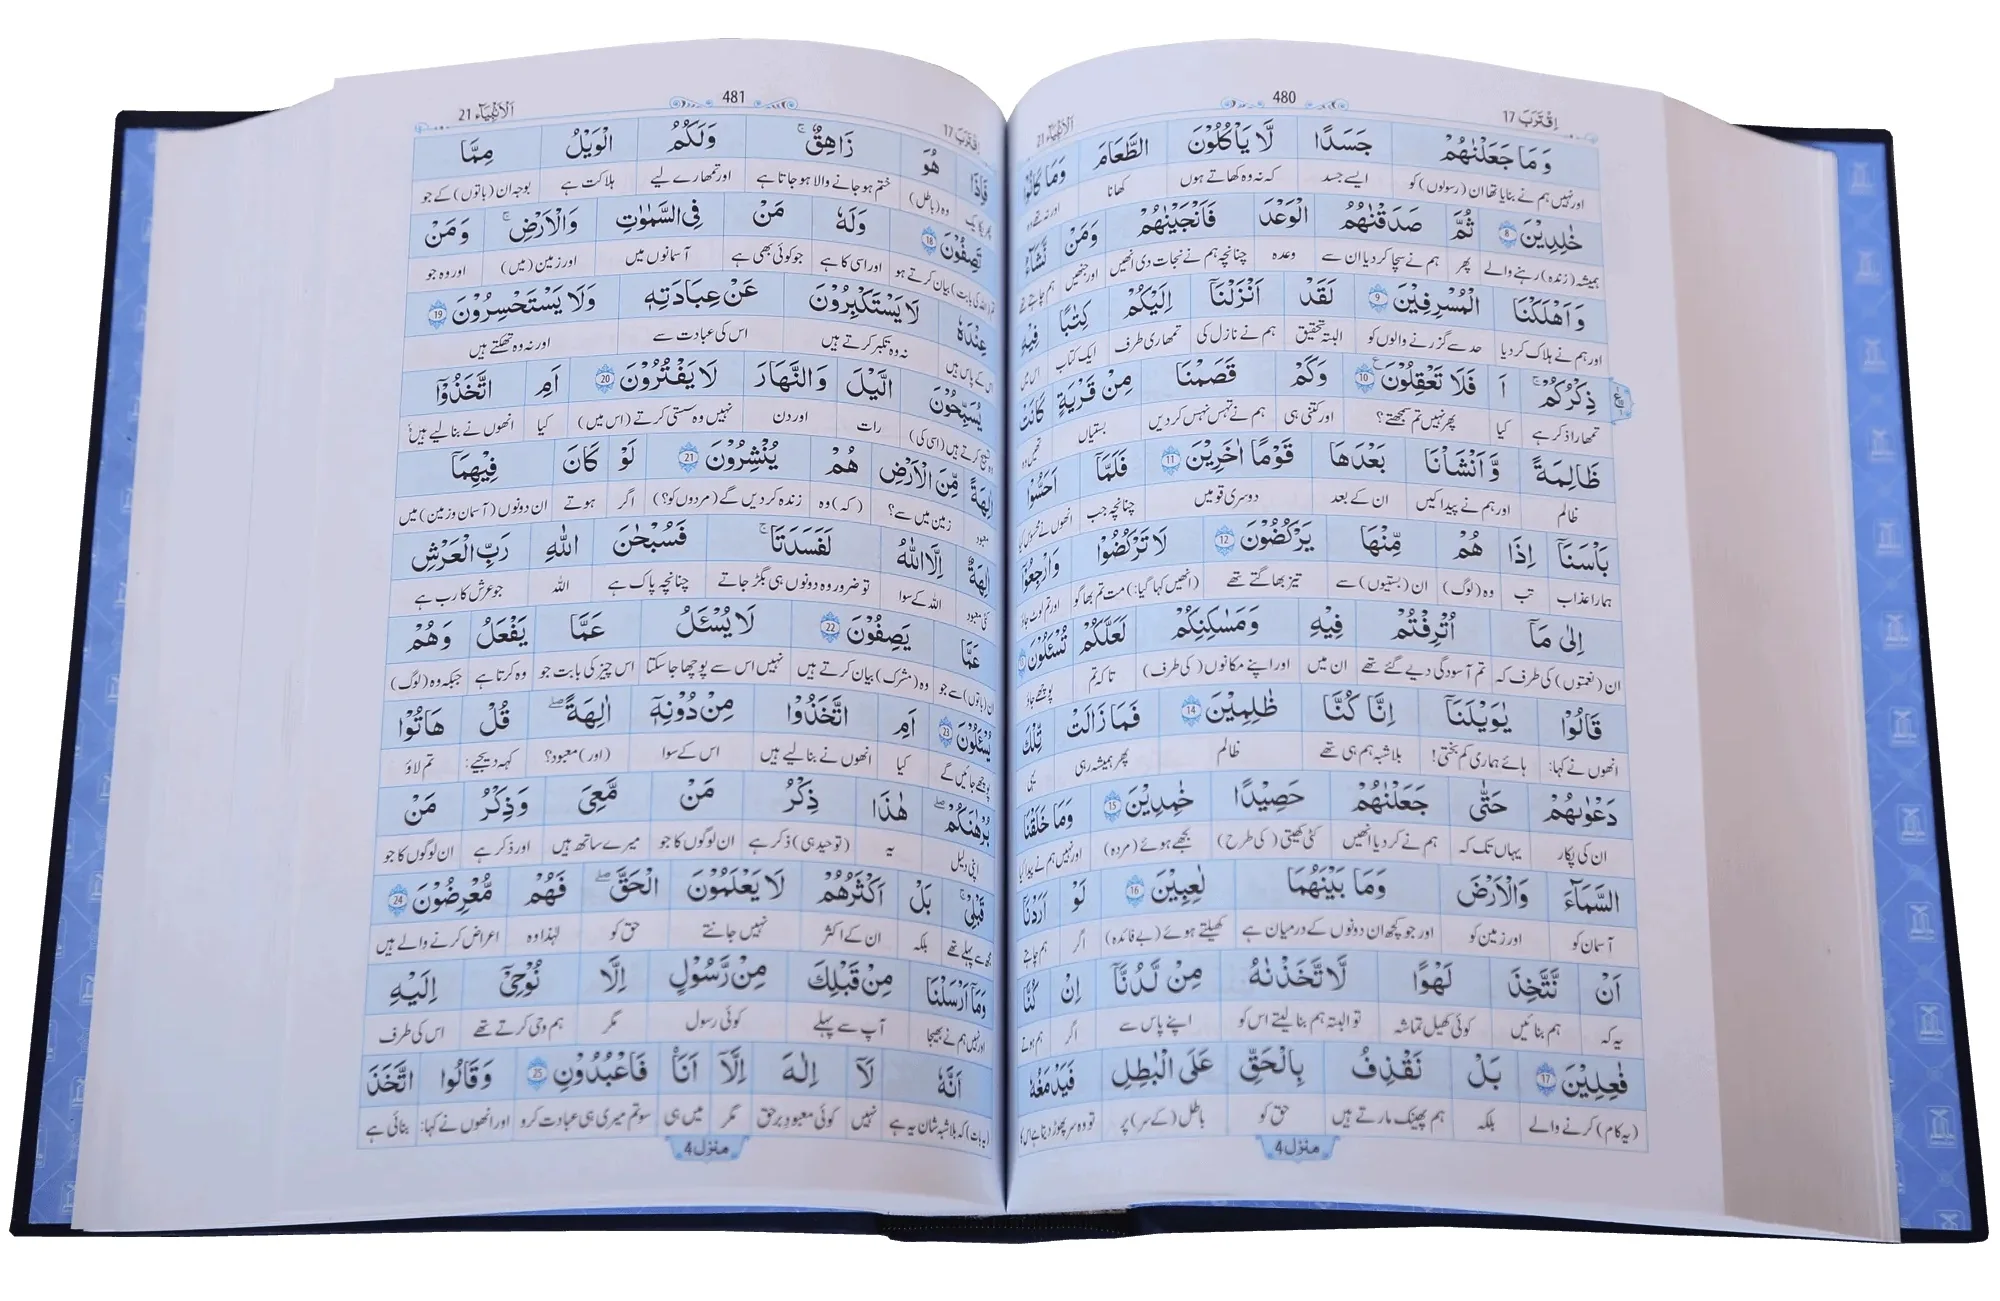 اِقْتَرَبَ 17 480 اَلْاَنْۢبِيَآء 21
وَ مَا جَعَلْنٰهُمْ جَسَدًا لَّا يَاْكُلُوْنَ الطَّعَامَ وَمَا كَانُوْا
اور نہیں ہم نے بنایا تھا ان (رسولوں) کو ایسے جسد کہ نہ وہ کھاتے ہوں کھانا اور نہ تھے وہ
خٰلِدِيْنَ 8 ثُمَّ صَدَقْنٰهُمُ الْوَعْدَ فَاَنْجَيْنٰهُمْ وَمَنْ نَّشَآءُ
ہمیشہ (زندہ) رہنے والے پھر ہم نے سچا کر دیا ان سے وعدہ چنانچہ ہم نے نجات دی انھیں اور جنھیں ہم چاہتے تھے
وَ اَهْلَكْنَا الْمُسْرِفِيْنَ 9 لَقَدْ اَنْزَلْنَآ اِلَيْكُمْ كِتٰبًا فِيْهِ
اور ہم نے ہلاک کر دیا حد سے گزرنے والوں کو البتہ تحقیق ہم نے نازل کی تمھاری طرف ایک کتاب اس میں
ذِكْرُكُمْ ۚ اَ فَلَا تَعْقِلُوْنَ ع 10 وَكَمْ قَصَمْنَا مِنْ قَرْيَةٍ كَانَتْ
تمھارا ذکر ہے کیا پھر نہیں تم سمجھتے؟ اور کتنی ہی ہم نے تہس نہس کر دیں بستیاں تھیں وہ
ظَالِمَةً وَّ اَنْشَاْنَا بَعْدَهَا قَوْمًا اٰخَرِيْنَ 11 فَلَمَّآ اَحَسُّوْا
ظالم اور ہم نے پیدا کیں ان کے بعد دوسری قومیں چنانچہ جب انھوں نے محسوس کیا
بَاْسَنَآ اِذَا هُمْ مِّنْهَا يَرْكُضُوْنَ 12 لَا تَرْكُضُوْا وَارْجِعُوْٓا
ہمارا عذاب تب وہ (لوگ) ان (بستیوں) سے تیز بھاگتے تھے (انھیں کہا گیا:) مت تم بھاگو اور تم لوٹ جاؤ
اِلٰى مَآ اُتْرِفْتُمْ فِيْهِ وَمَسٰكِنِكُمْ لَعَلَّكُمْ تُسْـَٔلُوْنَ 13
ان (نعمتوں) کی طرف کہ تم آسودگی دیے گئے تھے ان میں اور اپنے مکانوں (کی طرف) تاکہ تم پوچھے جاؤ
قَالُوْا يٰوَيْلَنَآ اِنَّا كُنَّا ظٰلِمِيْنَ 14 فَمَا زَالَتْ تِّلْكَ
انھوں نے کہا: ہائے ہماری کم بختی! بلاشبہ ہم ہی تھے ظالم پھر ہمیشہ رہی یہی
دَعْوٰىهُمْ حَتّٰى جَعَلْنٰهُمْ حَصِيْدًا خٰمِدِيْنَ 15 وَمَا خَلَقْنَا
ان کی پکار یہاں تک کہ ہم نے کر دیا انھیں کٹی کھیتی (کی طرح) بجھے ہوئے (مردہ) اور نہیں ہم نے پیدا کیا
السَّمَآءَ وَالْاَرْضَ وَمَا بَيْنَهُمَا لٰعِبِيْنَ 16 لَوْ اَرَدْنَآ
آسمان کو اور زمین کو اور جو کچھ ان دونوں کے درمیان ہے کھیلتے ہوئے (بے فائدہ) اگر ہم چاہتے
اَنْ نَّتَّخِذَ لَهْوًا لَّاتَّخَذْنٰهُ مِنْ لَّدُنَّآ اِنْ كُنَّا
یہ کہ ہم بنائیں کوئی کھیل تماشہ تو البتہ ہم بنا لیتے اس کو اپنے پاس سے اگر ہم ہوتے
فٰعِلِيْنَ 17 بَلْ نَقْذِفُ بِالْحَقِّ عَلَى الْبٰطِلِ فَيَدْمَغُهٗ
(یہ کام) کرنے والے بلکہ ہم پھینک مارتے ہیں حق کو باطل (کے سر) پر تو وہ سر پھوڑ دیتا ہے اس کا
منزل 4
اِقْتَرَبَ 17 481 اَلْاَنْۢبِيَآء 21
فَاِذَا هُوَ زَاهِقٌ ۚ وَلَكُمُ الْوَيْلُ مِمَّا
پھر یکایک وہ (باطل) ختم ہو جانے والا ہو جاتا ہے اور تمھارے لیے ہلاکت ہے بوجہ ان (باتوں) کے جو
تَصِفُوْنَ 18 وَلَهٗ مَنْ فِى السَّمٰوٰتِ وَالْاَرْضِ ۚ وَمَنْ
تم (اللہ کی بابت) بیان کرتے ہو اور اسی کا ہے جو کوئی بھی ہے آسمانوں میں اور زمین (میں) اور وہ جو
عِنْدَهٗ لَا يَسْتَكْبِرُوْنَ عَنْ عِبَادَتِهٖ وَلَا يَسْتَحْسِرُوْنَ 19
اس کے پاس ہیں نہ وہ تکبر کرتے ہیں اس کی عبادت سے اور نہ وہ تھکتے ہیں
يُسَبِّحُوْنَ الَّيْلَ وَالنَّهَارَ لَا يَفْتُرُوْنَ 20 اَمِ اتَّخَذُوْٓا
وہ تسبیح کرتے ہیں (اسی کی) رات اور دن نہیں وہ سستی کرتے (اس میں) کیا انھوں نے بنا لیے ہیں
اٰلِهَةً مِّنَ الْاَرْضِ هُمْ يُنْشِرُوْنَ 21 لَوْ كَانَ فِيْهِمَآ
معبود زمین میں سے؟ (کہ) وہ زندہ کر دیں گے (مردوں کو؟) اگر ہوتے ان دونوں (آسمان و زمین) میں
اٰلِهَةٌ اِلَّا اللّٰهُ لَفَسَدَتَا ۚ فَسُبْحٰنَ اللّٰهِ رَبِّ الْعَرْشِ
کئی معبود اللہ کے سوا تو ضرور وہ دونوں ہی بگڑ جاتے چنانچہ پاک ہے اللہ جو عرش کا رب ہے
عَمَّا يَصِفُوْنَ 22 لَا يُسْـَٔلُ عَمَّا يَفْعَلُ وَهُمْ
ان (باتوں) سے جو وہ (مشرک) بیان کرتے ہیں نہیں اس سے پوچھا جا سکتا اس چیز کی بابت جو وہ کرتا ہے جبکہ وہ (لوگ)
يُسْـَٔلُوْنَ 23 اَمِ اتَّخَذُوْا مِنْ دُوْنِهٖٓ اٰلِهَةً ۖ قُلْ هَاتُوْا
پوچھے جائیں گے کیا انھوں نے بنا لیے ہیں اس کے سوا (اور) معبود؟ کہہ دیجیے: تم لاؤ
بُرْهَانَكُمْ ۖ هٰذَا ذِكْرُ مَنْ مَّعِىَ وَذِكْرُ مَنْ
اپنی دلیل یہ (توحید ہی) ذکر ہے ان لوگوں کا جو میرے ساتھ ہیں اور ذکر ہے ان لوگوں کا جو
قَبْلِىْ ۚ بَلْ اَكْثَرُهُمْ لَا يَعْلَمُوْنَ الْحَقَّ ۖ فَهُمْ مُّعْرِضُوْنَ 24
مجھ سے پہلے تھے بلکہ ان کے اکثر نہیں جانتے حق کو لہٰذا وہ اعراض کرنے والے ہیں
وَمَآ اَرْسَلْنَا مِنْ قَبْلِكَ مِنْ رَّسُوْلٍ اِلَّا نُوْحِيْٓ اِلَيْهِ
اور نہیں ہم نے بھیجا آپ سے پہلے کوئی رسول مگر ہم وحی کرتے تھے اس کی طرف
اَنَّهٗ لَآ اِلٰهَ اِلَّآ اَنَا۠ فَاعْبُدُوْنِ 25 وَقَالُوا اتَّخَذَ
(یہ بات) کہ بلاشبہ شان یہ ہے نہیں کوئی معبود برحق مگر میں ہی سو تم میری ہی عبادت کرو اور انھوں نے کہا: بنائی ہے
منزل 4